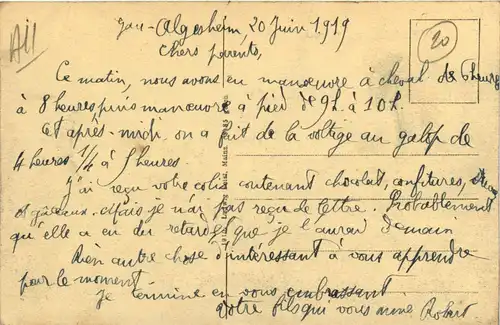 Gau-Algesheim, 20 Juin 1919
Chers parents,
Ce matin, nous avons eu manœuvre à cheval de 6 heures
à 8 heures puis manœuvre à pied de 9h à 10h.
Cet après-midi on a fait de la voltige au galop de
4 heures 1/4 à 5 heures.
J'ai reçu votre colis contenant chocolat, confitures,
et gâteaux. Mais je n'ai pas reçu de lettre. Probablement
qu'elle a eu du retard et que je l'aurai demain
Rien autre chose d'intéressant à vous apprendre
pour le moment
Je termine en vous embrassant
Votre fils qui vous aime Robert
All
20